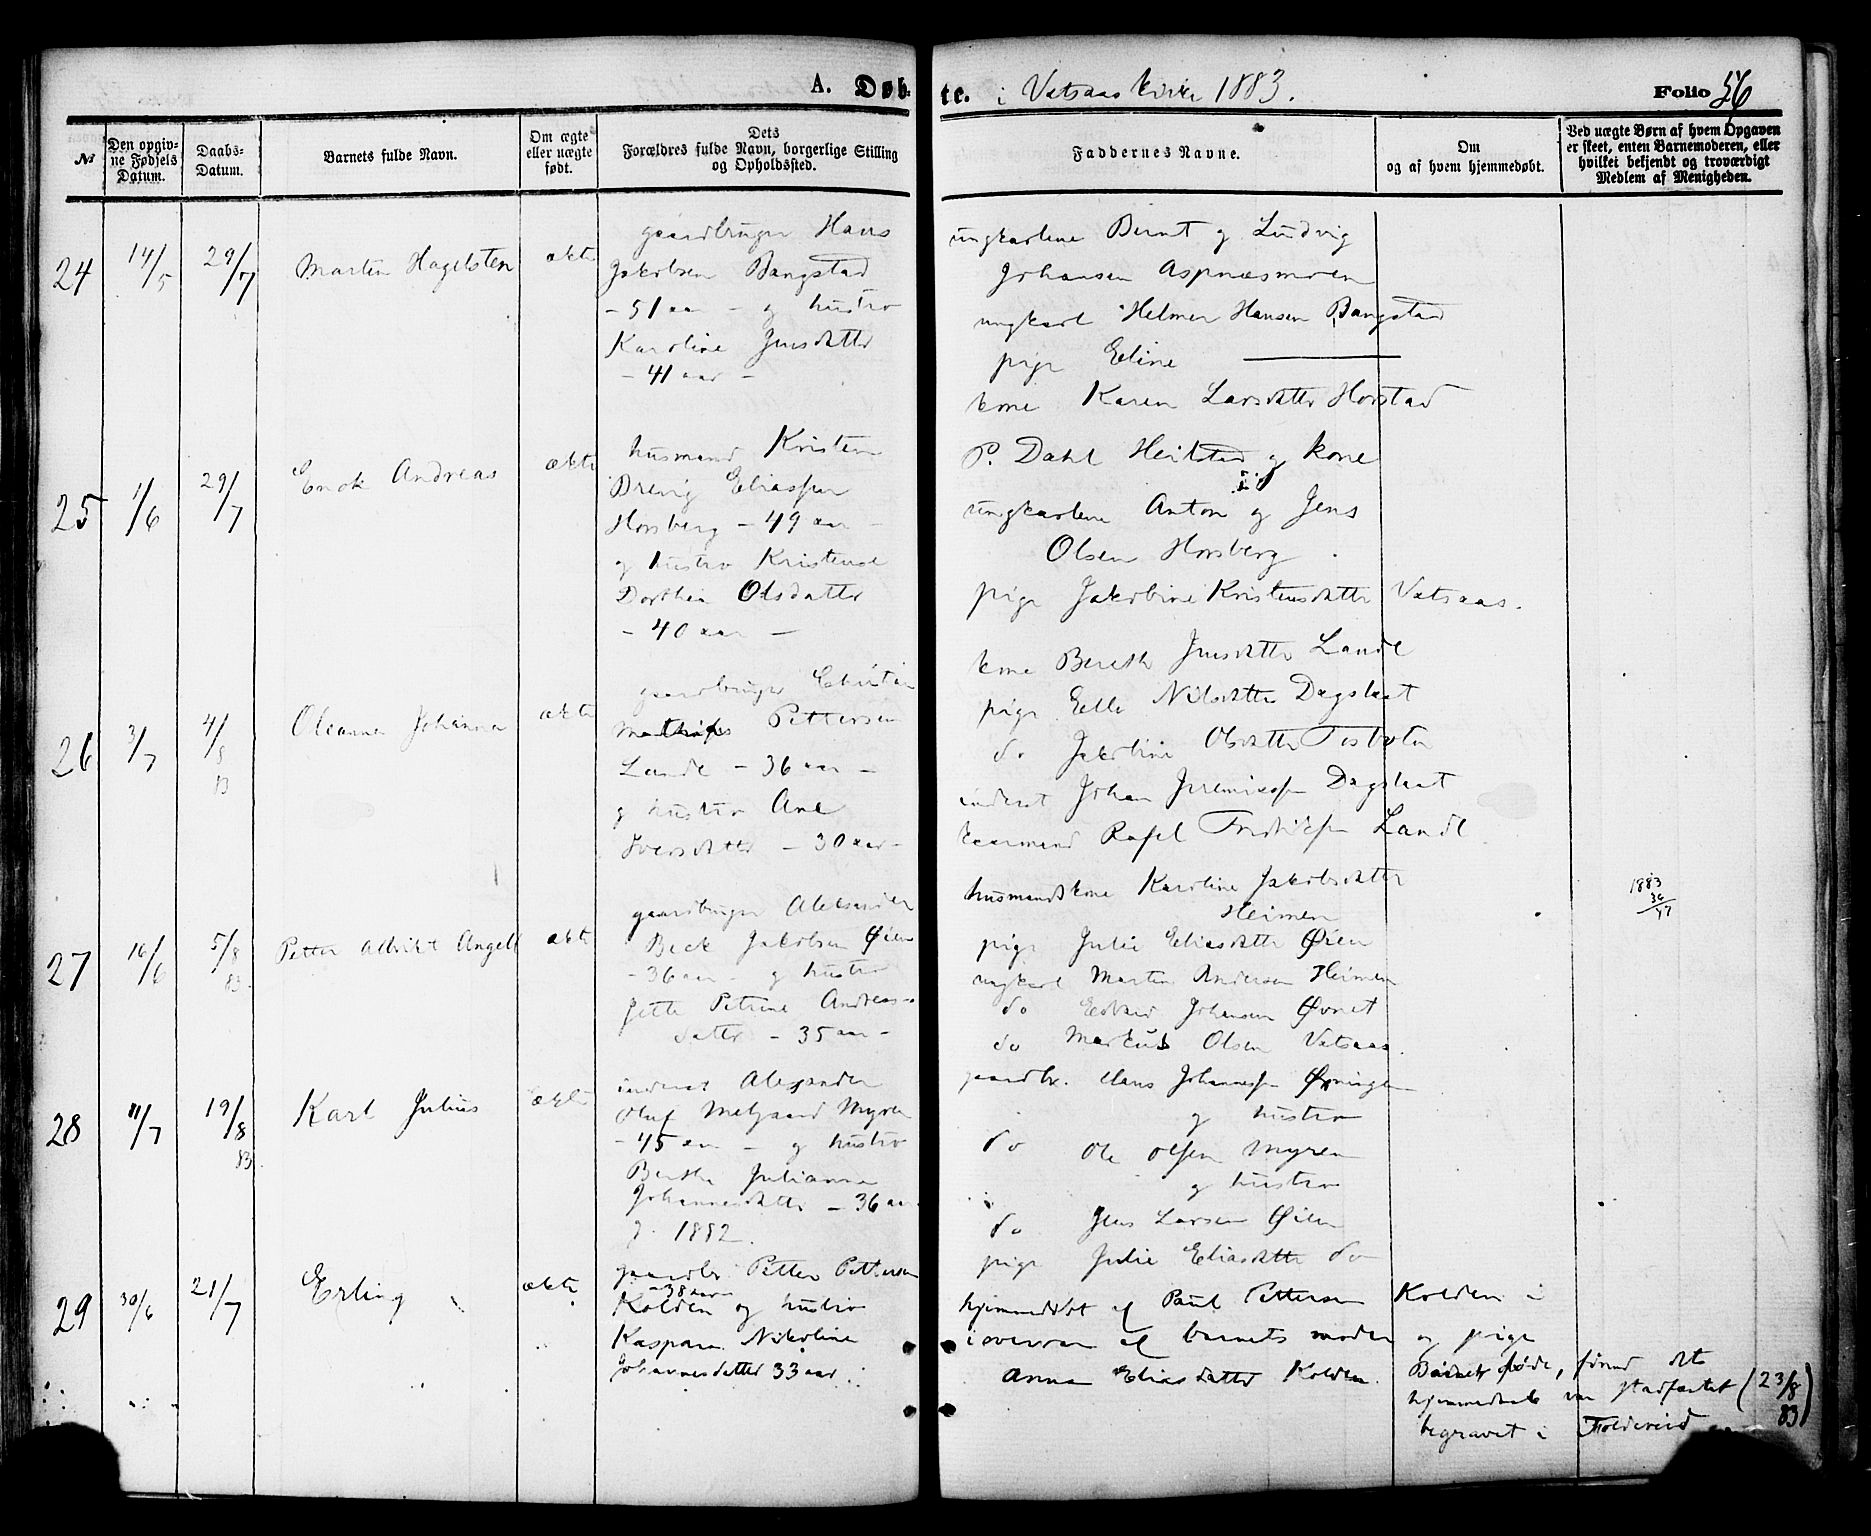 A. Døb-
te. i Vatsaas kirke 1883.
Folio 56
№
Den opgiv-
ne Fødsels
Datum.
Daabs-
Datum.
Barnets fulde Navn.
Om ægte
eller uægte
født.
Dets
Forældres fulde Navn, borgerlige Stilling
og Opholdssted.
Faddernes Navne.
Om
og af hvem hjemmedøbt.
Ved uægte Børn af hvem Opgaven
er skeet, enten Barnemoderen, eller
hvilket bekjendt og troværdigt
Medlem af Menigheden.
24
14/5
29/7
Martin Hagelsten
ækte
gaardbruger Hans
Jakobsen Bangstad
- 51 aar - og hustro
Karoline Jensdatter
- 41 aar -
ungkarlene Bernt og Ludvig
Johansen Aspnæsmoen
ungkarl Helmer Hansen Bangstad
pige Eline ———
kone Karen Larsdatter Horstad
25
1/6
29/7
Enok Andreas
ækte
husmand Kristen
Drevig Eliassen
Horsberg - 49 aar -
og hustro Kristense
Dorthea Olsdatter
- 40 aar -
P. Dahl Heilstad og kone
ungkarlene Anton og Jens
Olsen Horsberg.
pige Jakobine Kristensdatter Vatsaas.
26
3/7
4/8
83
Oleanna Johanna
ækte
gaardbruger Christian
Mathias Pettersen
Lande - 36 aar -
og hustro Ane
Iversdatter - 30 aar -
kone Bereth Jensdatter Lande
pige Elle Nilsdatter Dagslaat
do Jakobine Olsdatter
inderst Johan Jeremiassen Dagslaat
kaarmand Rafel Fredriksen Lande
27
16/6
5/8
83.
Petter Albrikt Angell
ækte
gaardbruger Aleksander
Beck Jakobsen Øien
- 36 aar - og hustro
Jette Petrine Andreas-
datter - 35 aar -
husmandskone Karoline Jakobsdatter
Heimen
pige Julie Eliasdatter Øien
ungkarl Martin Andersen Heimen
do Edvard Johansen Øvnet
do Markus Olsen Vatsaas.
1883
36
47
28
11/7
19/8
83.
Karl Julius
ækte
inderst Alexander
Oluf Melgaard Myren
- 45 aar - og hustro
Bertha Julianna
Johannesdatter - 36 aar
g. 1882.
gaardbr. Hans Johannessen
og hustro
do Ole Olsen Myren
og hustro
do Jens Larsen Øien
pige Julie Eliasdatter do
29
30/6
21/7
Erling
ækte
gaardbr. Petter Pettersen
- 38 aar -
Kolden og hustro
Kaspara Nikoline
Johannesdatter 33 aar.
hjemmedøbt af Paul Pettersen Kolden i
overvær af barnets moder og pige
Anna Eliasdatter Kolden.
Barnet døde, førend det
hjemmedaab var stadfæstet (23/8
83)
begravet i Foldereid